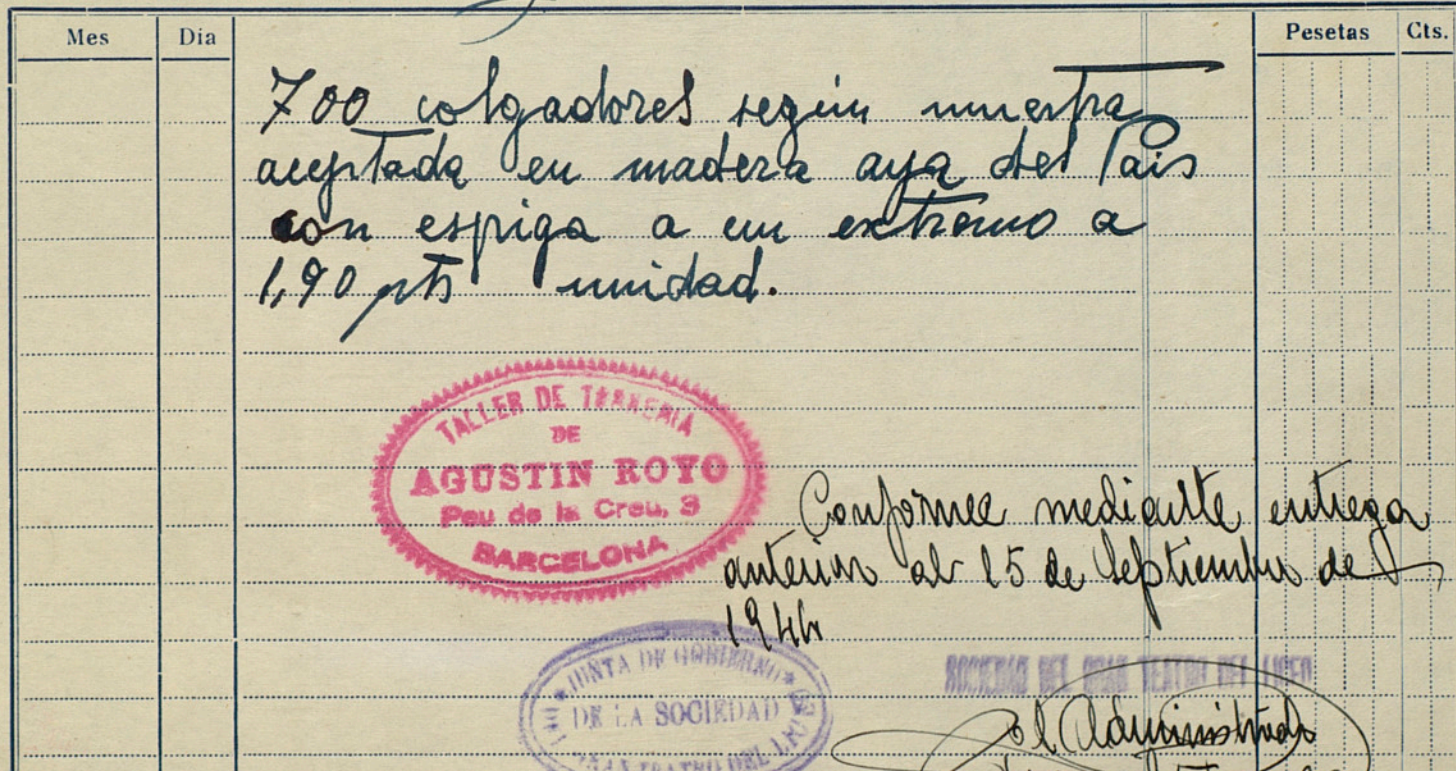 Mes Dia Pesetas Cts.
700 colgadores según muestra
aceptada en madera aya del Pais
con espiga a un extremo a
1,90 pts unidad.
TALLER DE TORNERIA
DE
AGUSTIN ROYO
Peu de la Creu, 3
BARCELONA
Conforme mediante entrega
anterior al 15 de Septiembre de
JUNTA DE GOBIERNO
DE LA SOCIEDAD
GRAN TEATRO DEL LICEO
SOCIEDAD DEL GRAN TEATRO DEL LICEO
El Administrador